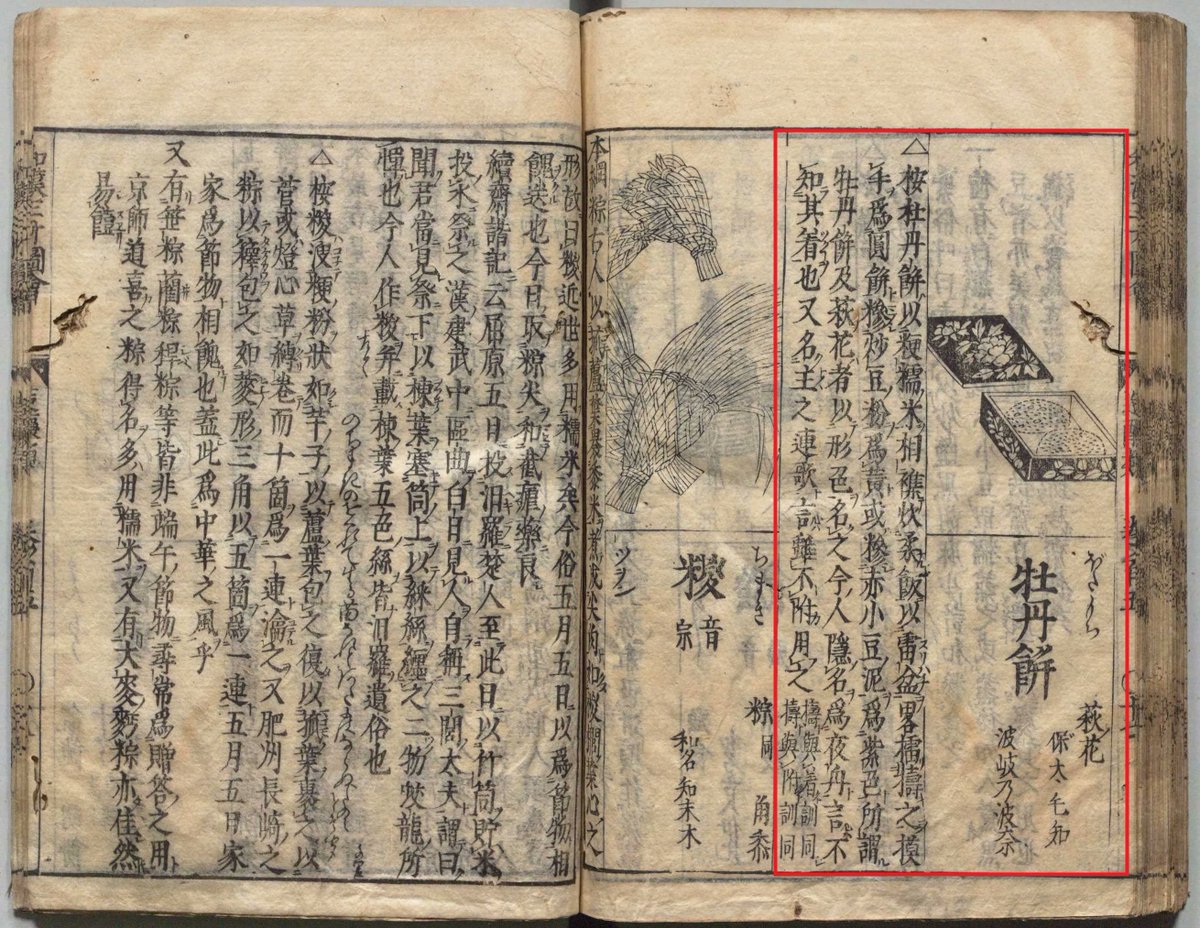 ぼたもち
牡丹餅
萩花
保太毛知
波岐乃波奈
△按牡丹餅以粳糯米相襍炊柔飯以雷盆畧擂擣之摸
手爲圓餅糝炒豆粉爲黄或糝赤小豆泥爲紫色所謂
牡丹餅及萩花者以形色名之今人隱名爲夜舟言不
知其着也又名主之連歌言難不附用之
擣與着訓同
擣與附訓同
ちまき
糉
音宗
ツヲン
粽同
角黍
和名知末木
本綱粽古人以菰蘆葉裹黍米煮成尖角如椶櫚葉心之
形故曰糉近世多用糯米矣今俗五月五日以爲節物相
餽送也今日取粽尖和截瘧藥良
續齊諧記云屈原五月投汨羅楚人至此日以竹筒貯米
投水祭之漢建武中區曲白日見人自稱三閭大夫謂曰
聞君當見祭下以楝葉塞筒上以綵絲纏之二物蛟龍所
憚也今人作糉并載楝葉五色絲皆汨羅遺俗也
△按糉浚粳粉狀如芋子以蘆葉包之復以菰葉裹之以
菅或燈心草縛卷而十箇爲一連瀹之又肥州長崎之
粽以籜包之如菱形三角以五箇爲一連五月五日家
家爲節物相餽也蓋此爲中華之風乎
又有笹粽藺粽稈粽等皆非端午節物尋常爲贈答之用
京師道喜之粽得名多用糯米又有大麥麪粽亦佳然
易饐